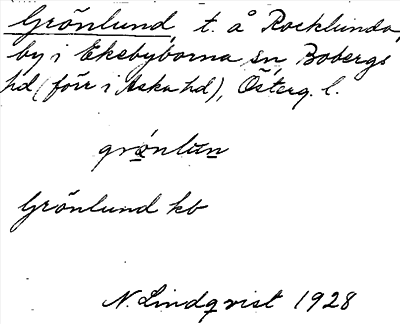 Grönlund, t. å Rocklunda,
by i Ekebyborna sn, Bobergs
hd (förr i Aska hd), Österg. l.
grönlun
Grönlund kb
N. Lindqvist 1928